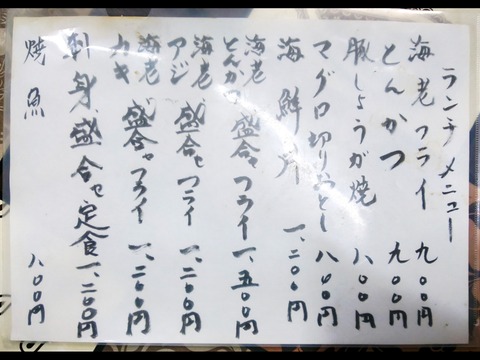 ランチメニュー
海老フライ 九〇〇円
とんかつ 九〇〇円
豚しょうが焼 八〇〇円
マグロ切りおとし 八〇〇円
海鮮丼 一、二〇〇円
海老とんかつ盛合せフライ 一、五〇〇円
海老アジ盛合せフライ 一、二〇〇円
海老カキ盛合せフライ 一、二〇〇円
刺身盛合せ定食 一、二〇〇円
焼魚 八〇〇円